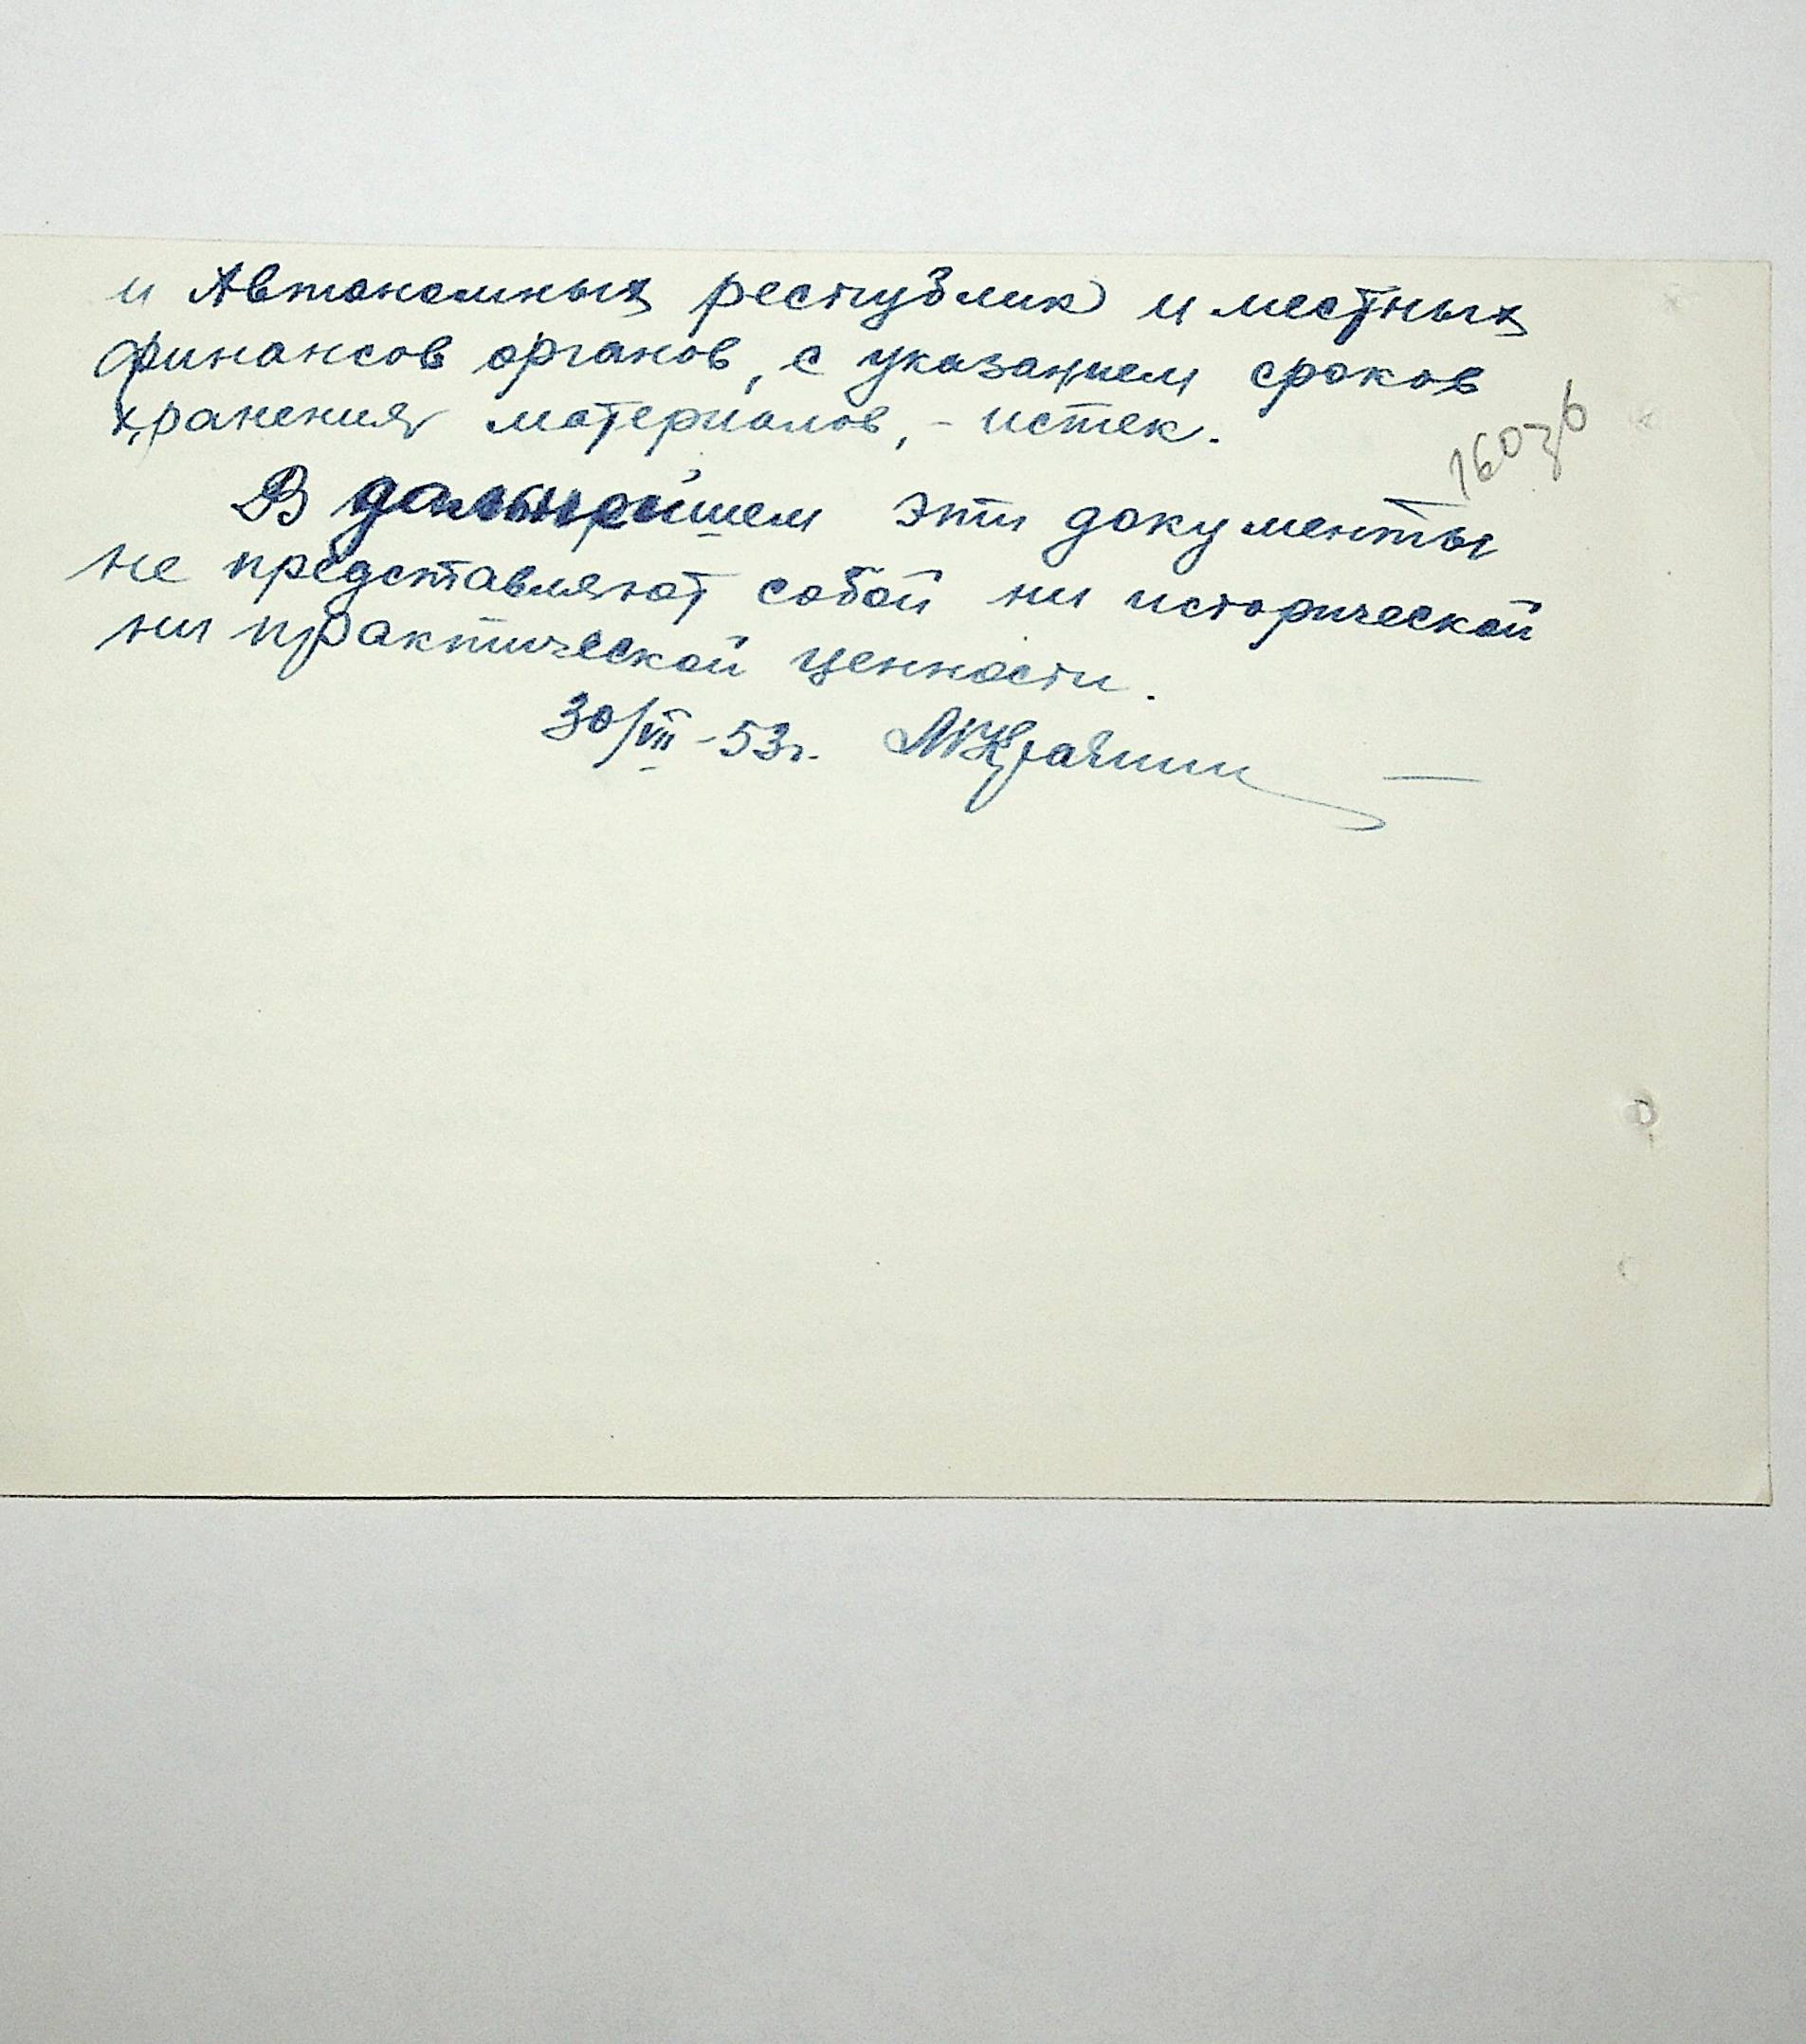 и Автономных республик и местных
финансов органов, с указанием сроков
хранения материалов, - истек.
160зб
В дальнейшем эти документы
не представляют собой ни исторической
ни практической ценности.
30/VII - 53г.